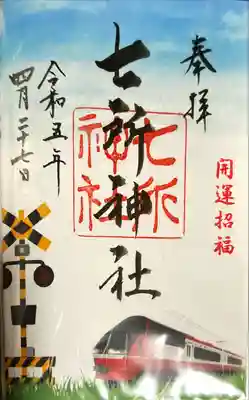 奉拝
開運招福
七所神社
七所神社
令和五年
四月二十七日